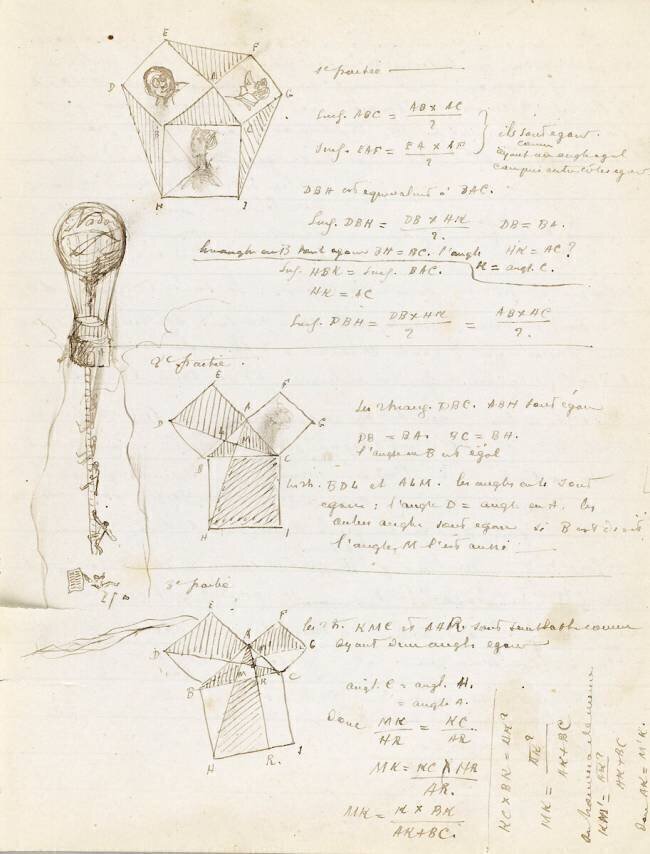 E
F
D
A
G
B
C
H
I
1e partie
Surf. ABC = AB × AC / 2
Surf. EAF = EA × AF / 2
ils sont égaux
comme
ayant un angle égal
compris entre côtés égaux
DBH est équivalent à BAC.
Surf. DBH = DB × HK / 2. DB = BA.
angles en B sont égaux BH = BC. l'angle HK = AC?
Surf. HBK = Surf. BAC. K = angl. C.
HK = AC
Surf. DBH = DB × HK / 2 = AB × AC / 2.
Nadar
2e partie.
E
F
D
A
G
L
M
B
C
H
I
Les triang. DBC. ABH sont égaux
DB = BA. BC = BH.
l'angle en B est égal
Les tr. BDL et ALM. les angles en L sont
égaux : l'angle D = angle en A. les
autres angles sont égaux si B est droit
l'angle M l'est aussi
3e partie
E
F
D
A
G
M
K
B
C
H
R.
I
les tr. KMC et AHR. sont semblables comme
ayant deux angles égaux
angl. C = angl. H.
= angle A.
Donc MK / HR = KC / AR
MK = KC × HR / AR.
MK = K × BK / AK+BC.
KC × BK = AK²
MK = AK² / AK+BC
KM' = AK² / AK+BC
Donc MK = M'K.